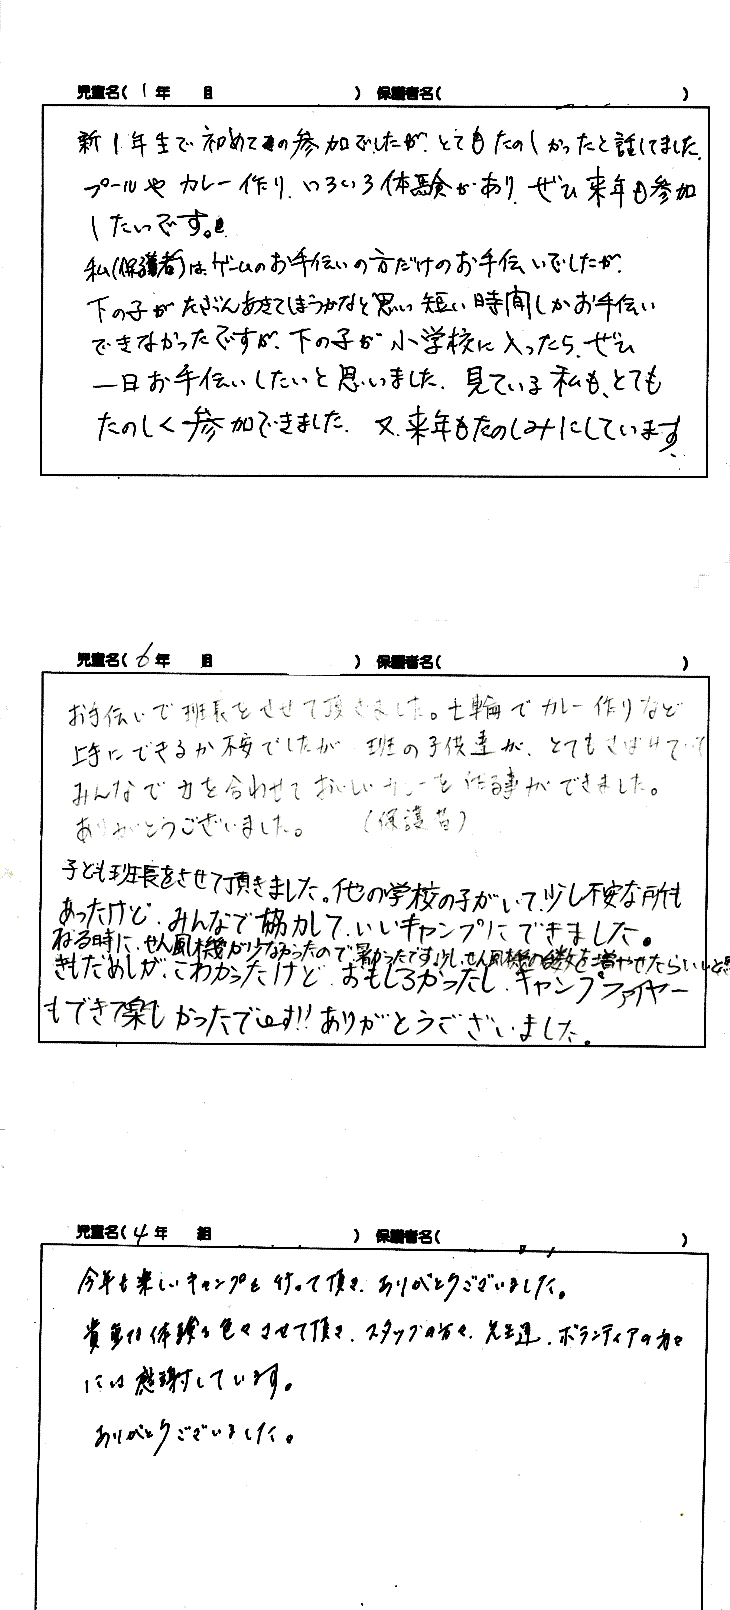 児童名( 1年 組 ) 保護者名( )
新1年生で初めての参加でしたが、とてもたのしかったと話してました。
プールや カレー作り、いろいろ体験があり、ぜひ来年も参加
したいです。
私(保護者)は、ゲームのお手伝いの方だけのお手伝いでしたが、
下の子がたぶんあきてしまうかなと思い 短い時間しかお手伝い
できなかったですが、下の子が小学校に入ったら、ぜひ
一日お手伝いしたいと思いました。見ている私も、とても
たのしく参加できました。又、来年もたのしみにしています。
児童名( 6年 組 ) 保護者名( )
お手伝いで班長をさせて頂きました。七輪でカレー作りなど
上手にできるか不安でしたが 班の子供達が、とてもさばけて
みんなで力を合わせておいしいカレーを作る事ができました。
ありがとうございました。 (保護者)
子ども班長をさせて頂きました。他の学校の子がいて、少し不安な所も
あったけど、みんなで協力して、いいキャンプにできました。
ねる時に、せん風機が少なかったので、暑かったです。少し、せん風機の台数を増やせたらいいと思
きもだめしが、こわかったけど、おもしろかったし、キャンプファイヤー
もできて楽しかったです!!ありがとうございました。
児童名( 4年 組 ) 保護者名( )
今年も楽しいキャンプを行って頂き、ありがとうございました。
貴重な体験を色々させて頂き、スタッフの方々、先生達、ボランティアの方々
には感謝しています。
ありがとうございました。